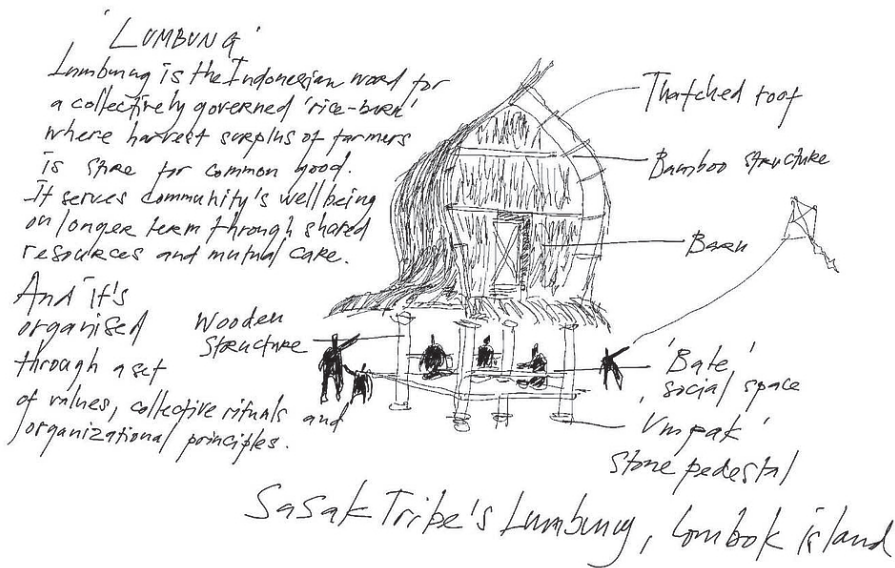 'LUMBUNG'
Lumbung is the Indonesian word for
a collectively governed 'rice-barn'
where harvest surplus of farmers
is store for common good.
It serves community's well being
on longer term through shared
resources and mutual care.
And it's
organised
through a set
of values, collective rituals and
organizational principles.
Thatched roof
Bamboo structure
Barn
Wooden
Structure
'Bale'
social space
'Umpak'
stone pedestal
Sasak Tribe's Lumbung, Lombok island